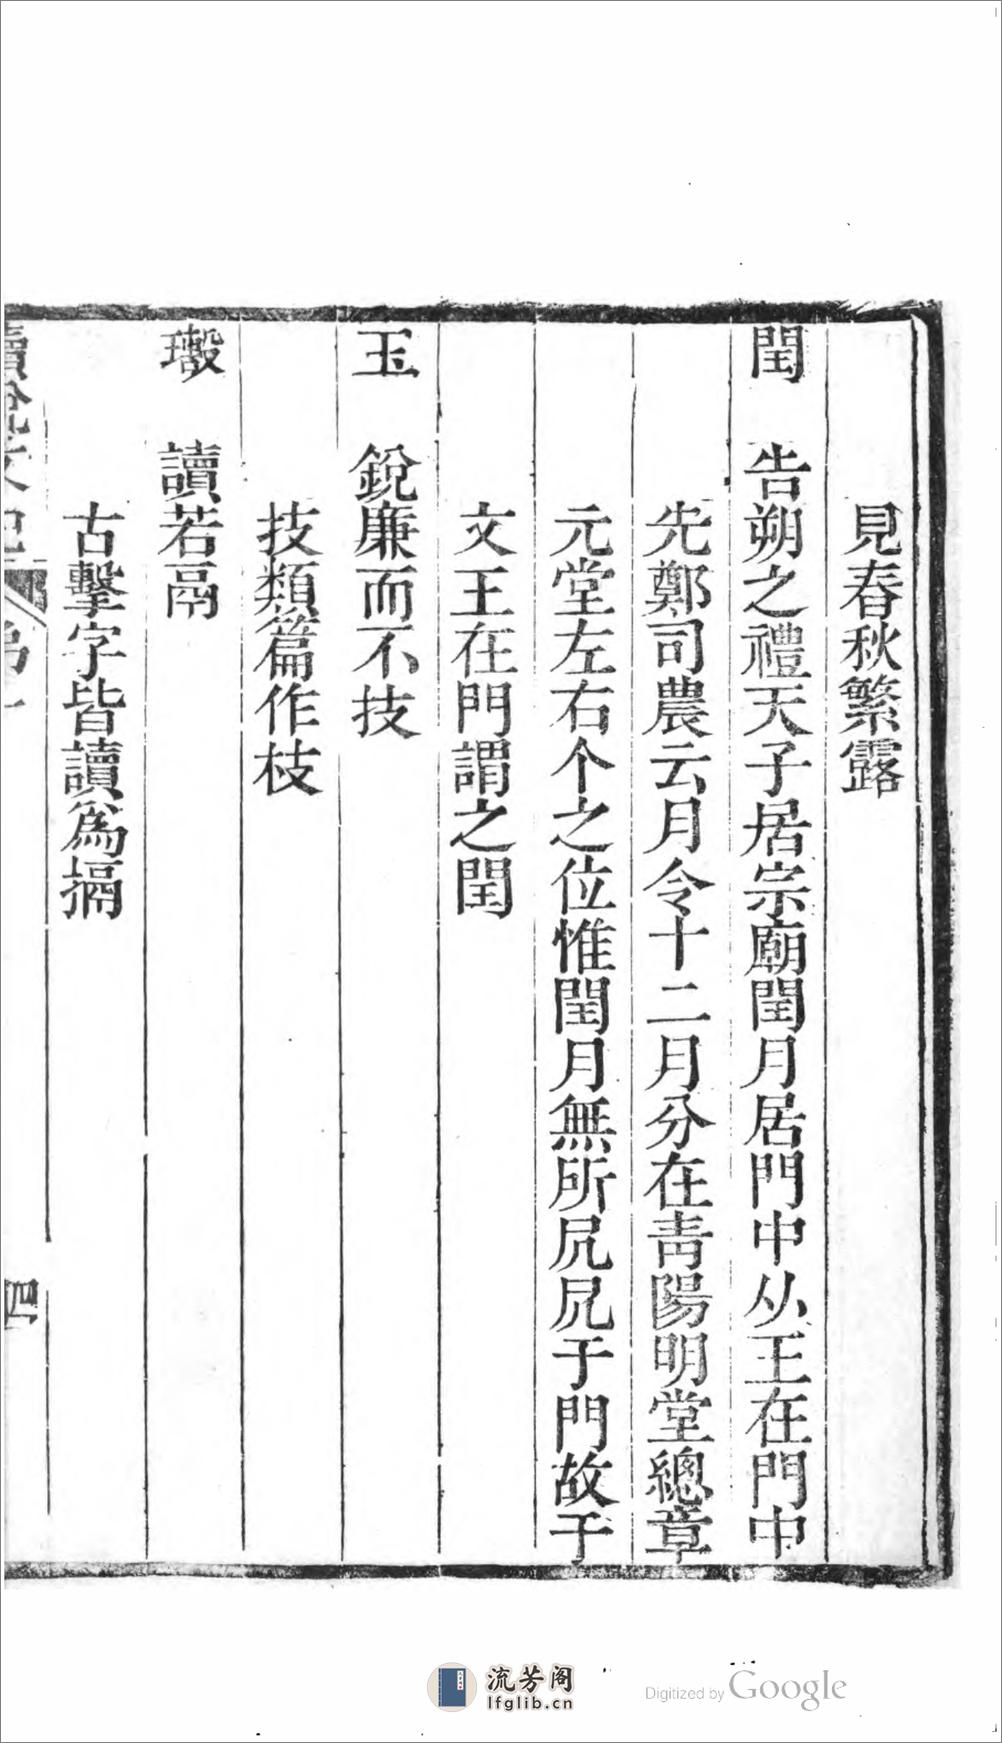 見春秋繁露
閏 告朔之禮天子居宗廟閏月居門中从王在門中
先鄭司農云月令十二月分在靑陽明堂總章
元堂左右个之位惟閏月無所凥凥于門故于
文王在門謂之閏
玉 銳廉而不技
技類篇作枝
瑴 讀若鬲
古擊字皆讀爲搹
讀說文記 第一
四
流芳阁
lfglib.cn
Digitized by Google